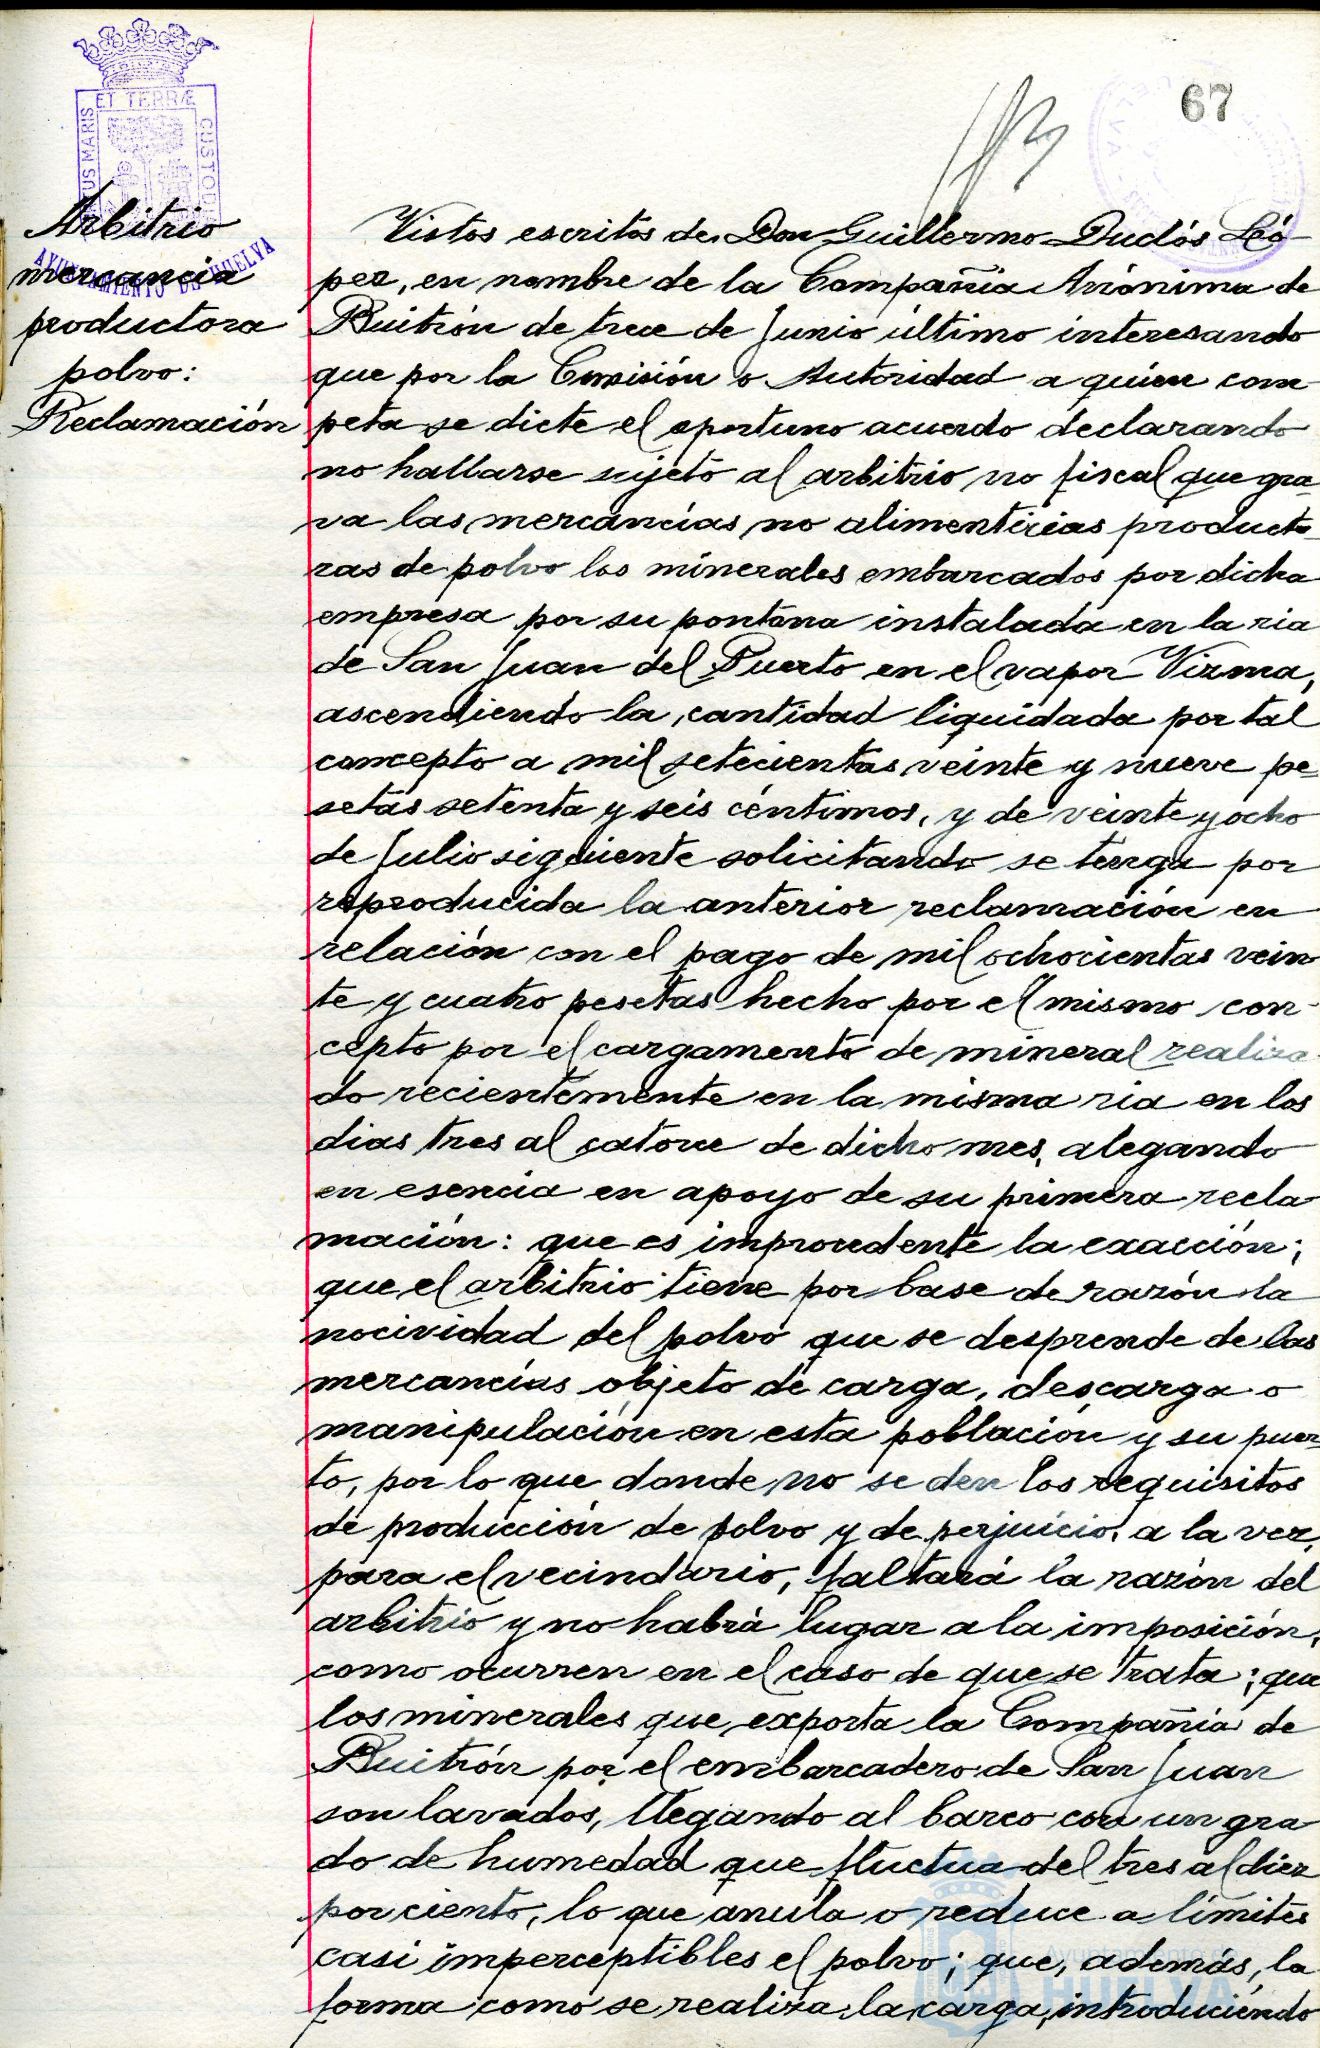 67
PORTUS MARIS ET TERRÆ CUSTODIA
AYUNTAMIENTO DE HUELVA
Arbitrio
mercancia
productora
polvo:
Reclamación
Vistos escritos de Don Guillermo Duclós Ló-
pez, en nombre de la Compañia Anónima de
Buitrón de trece de Junio último interesando
que por la Comisión o Autoridad a quien com-
peta se dicte el oportuno acuerdo declarando
no hallarse sujeto al arbitrio no fiscal que gra-
va las mercancías no alimenticias producto-
ras de polvo los minerales embarcados por dicha
empresa por su pontona instalada en la ria
de San Juan del Puerto en el vapor Vizma,
ascendiendo la cantidad liquidada por tal
concepto a mil setecientas veinte y nueve pe-
setas setenta y seis céntimos, y de veinte y ocho
de Julio siguiente solicitando se tenga por
reproducida la anterior reclamación en
relación con el pago de mil ochocientas vein-
te y cuatro pesetas hecho por el mismo con-
cepto por el cargamento de mineral realiza-
do recientemente en la misma ria en los
dias tres al catorce de dicho mes, alegando
en esencia en apoyo de su primera recla-
mación: que es improcedente la exacción;
que el arbitrio tiene por base de razón la
nocividad del polvo que se desprende de las
mercancías objeto de carga, descarga o
manipulación en esta población y su puer-
to, por lo que donde no se den los requisitos
de producción de polvo y de perjuicio, a la vez,
para el vecindario, faltará la razón del
arbitrio y no habrá lugar a la imposición,
como ocurren en el caso de que se trata; que
los minerales que exporta la Compañia de
Buitrón por el embarcadero de San Juan
son lavados, llegando al barco con un gra-
do de humedad que fluctua del tres al diez
por ciento, lo que anula o reduce a límites
casi imperceptibles el polvo; que, además, la
forma como se realiza la carga, introduciéndo
Ayuntamiento de
HUELVA